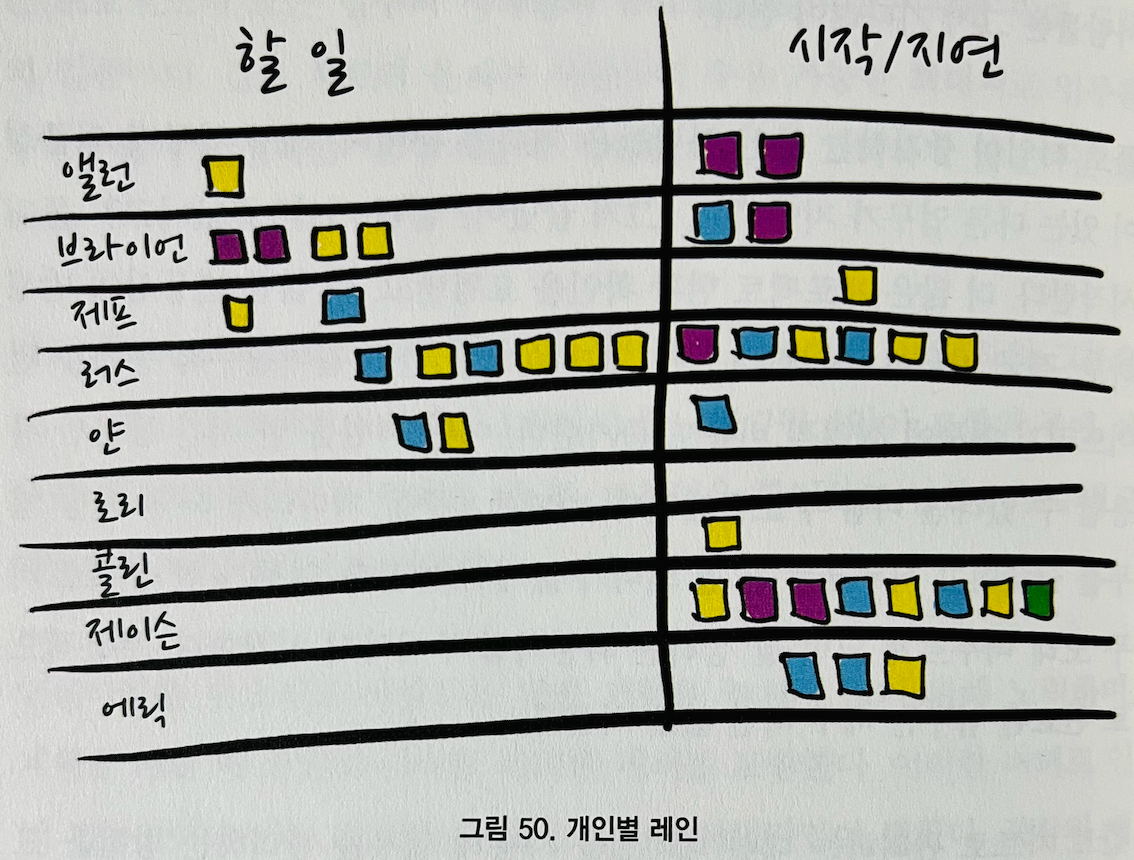 할 일
시작/지연
앨런
브라이언
제프
러스
얀
로리
콜린
제이슨
에릭
그림 50. 개인별 레인